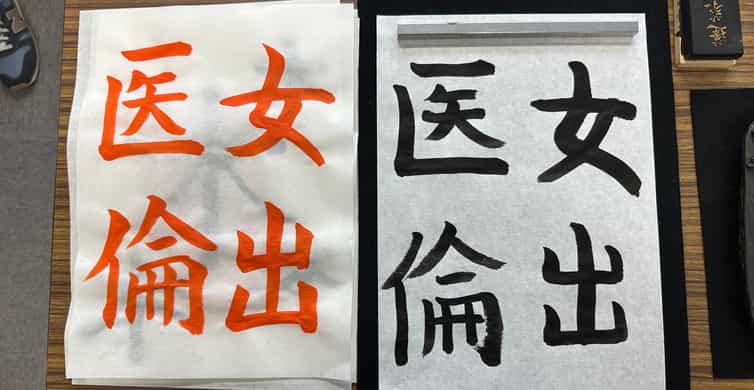 女出
医倫
女出
医倫